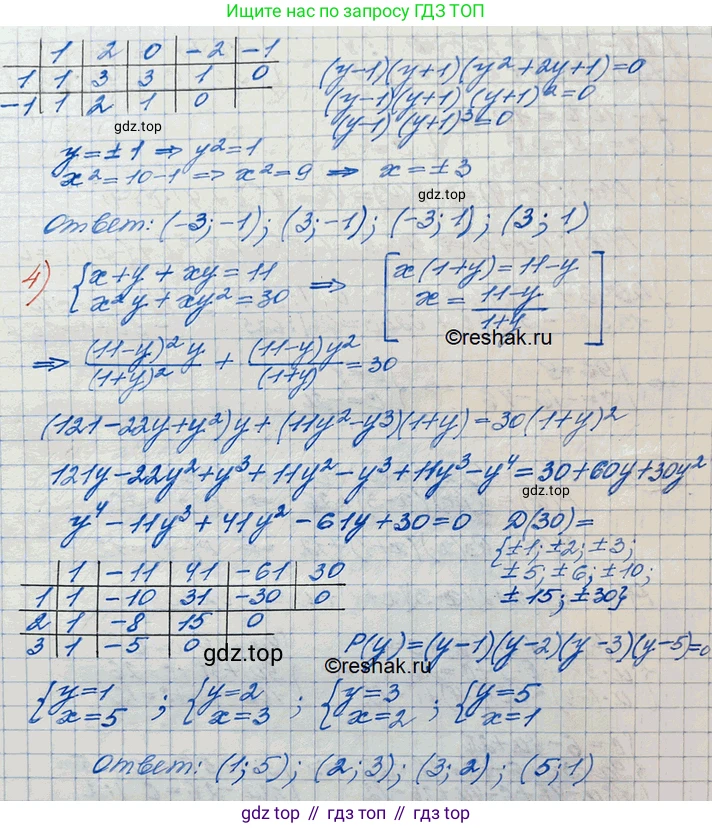 Ищите нас по запросу ГДЗ ТОП
1 2 0 -2 -1
1 1 3 3 1 0
-1 1 2 1 0
(y-1)(y+1)(y²+2y+1)=0
(y-1)(y+1)(y+1)²=0
(y-1)(y+1)³=0
gdz.top
y=±1 ⇒ y²=1
x²=10-1 => x²=9 ⇒ x=±3
gdz.top
Ответ: (-3;-1); (3;-1); (-3;1); (3;1)
4) { x+y+xy=11 ⇒ [ x(1+y)=11-y ]
x²y+xy²=30 x=(11-y)/(1+y)
©reshak.ru
⇒ (11-y)²y/(1+y)² + (11-y)y²/(1+y) =30
(121-22y+y²)y+(11y²-y3)(1+y)=30(1+y)²
121y-22y²+y³+11y²-y³+11y³-y⁴=30+60y+30y²
gdz.top
y⁴-11y³+41y²-61y+30=0 D(30)=
{±1;±2;±3;
±5;±6;±10;
±15;±30}
1 -11 41 -61 30
1 1 -10 31 -30 0
2 1 -8 15 0
3 1 -5 0
gdz.top
P(y)=(y-1)(y-2)(y-3)(y-5)=0
©reshak.ru
{ y=1 ; { y=2 ; { y=3 ; { y=5
x=5 x=3 x=2 x=1
Ответ: (1;5); (2;3); (3;2); (5;1)
gdz.top // гдз.топ // gdz.top // гдз.топ